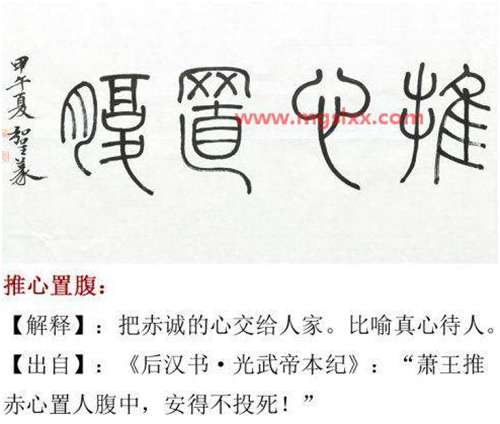 推心置腹
甲午夏
www.mgslxx.com
推心置腹：
【解释】：把赤诚的心交给人家。比喻真心待人。
【出自】：《后汉书·光武帝本纪》：“萧王推
赤心置人腹中，安得不投死！”